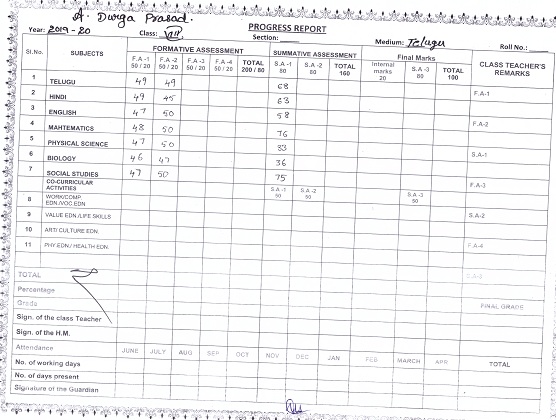 A. Durga Prasad.
PROGRESS REPORT
Year: 2019-20 Class: VIII Section: Medium: Telugu Roll No.:
Sl.No. SUBJECTS FORMATIVE ASSESSMENT SUMMATIVE ASSESSMENT Final Marks CLASS TEACHER'S REMARKS
F.A -1 50 / 20 F.A -2 50 / 20 F.A -3 50 / 20 F.A -4 50 / 20 TOTAL 200 / 80 S.A -1 80 S.A -2 80 TOTAL 160 Internal marks 20 S.A -3 80 TOTAL 100
1 TELUGU 49 49 68 F.A -1
2 HINDI 49 45 63
3 ENGLISH 47 50 58 F.A -2
4 MAHTEMATICS 48 50 76
5 PHYSICAL SCIENCE 47 50 33 S.A -1
6 BIOLOGY 46 47 36
7 SOCIAL STUDIES 47 50 75 F.A -3
CO-CURRICULAR ACTIVITIES S.A -1 50 S.A -2 50 S.A -3 50
8 WORK/COMP. EDN./VOC.EDN.
9 VALUE EDN./LIFE SKILLS S.A -2
10 ART/ CULTURE EDN.
11 PHY.EDN./ HEALTH EDN. F.A -4
TOTAL
Percentage
Grade FINAL GRADE
Sign. of the class Teacher
Sign. of the H.M.
Attendance JUNE JULY AUG SEP OCT NOV DEC JAN FEB MARCH APR TOTAL
No. of working days
No. of days present
Signature of the Guardian